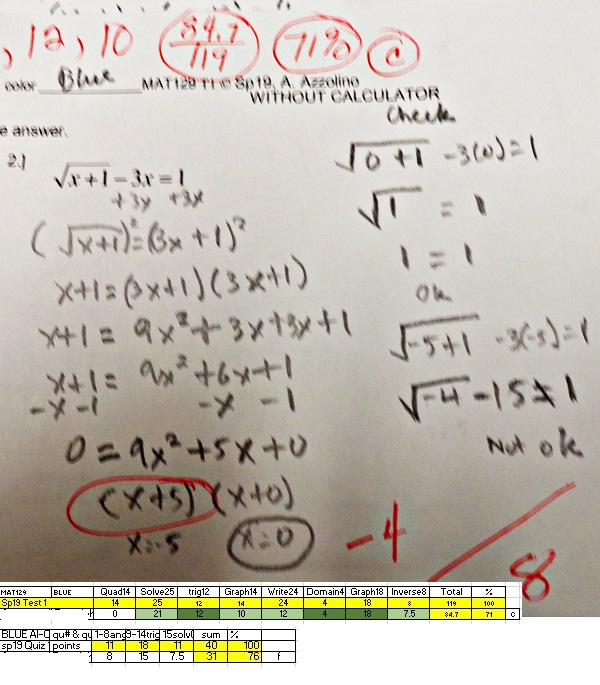 , 12, 10 84.7/119 71% C
color Blue MAT129 T1 © Sp19, A. Azzolino
WITHOUT CALCULATOR
e answer.
2.)
√x+1 - 3x = 1
+3x +3x
(√x+1)² = (3x+1)²
x+1 = (3x+1)(3x+1)
x+1 = 9x² + 3x + 3x + 1
x+1 = 9x² + 6x + 1
-x -1 -x -1
0 = 9x² + 5x + 0
(x+5) (x+0)
x=-5 x=0
Check
√0+1 - 3(0) = 1
√1 = 1
1 = 1
Ok
√-5+1 -3(-5) = 1
√-4 - 15 ≠ 1
Not ok
-4 / 8
MAT129 BLUE Quad14 Solve25 trig12 Graph14 Write24 Domain4 Graph18 Inverse8 Total %
Sp19 Test 1 14 25 12 14 24 4 18 8 119 100
0 21 12 10 12 4 18 7.5 84.7 71 c
BLUE AI-Q qu# & qu 1-8ang 9-14trig 15solv sum %
sp19 Quiz points 11 18 11 40 100
8 15 7.5 31 76 f